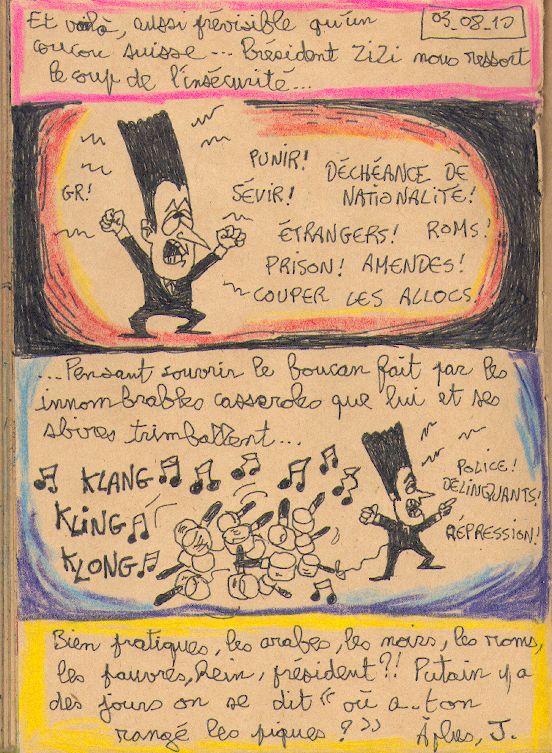 Et voilà, aussi prévisible qu'un
coucou suisse... Président ZiZi nous ressort
le coup de l'insécurité...
03_08_10
GR!
PUNIR!
SÉVIR!
DÉCHÉANCE DE
NATIONALITÉ!
ÉTRANGERS! ROMS!
PRISON! AMENDES!
COUPER LES ALLOCS!
...Pensant couvrir le boucan fait par les
innombrables casseroles que lui et ses
sbires trimballent...
KLANG
KLiNG
KLONG
POLICE!
DÉLINQUANTS!
RÉPRESSION!
Bien pratiques, les arabes, les noirs, les roms,
les pauvres, hein, président?! Putain y'a
des jours on se dit "où a-t-on
rangé les piques?>>
Àplus, J.